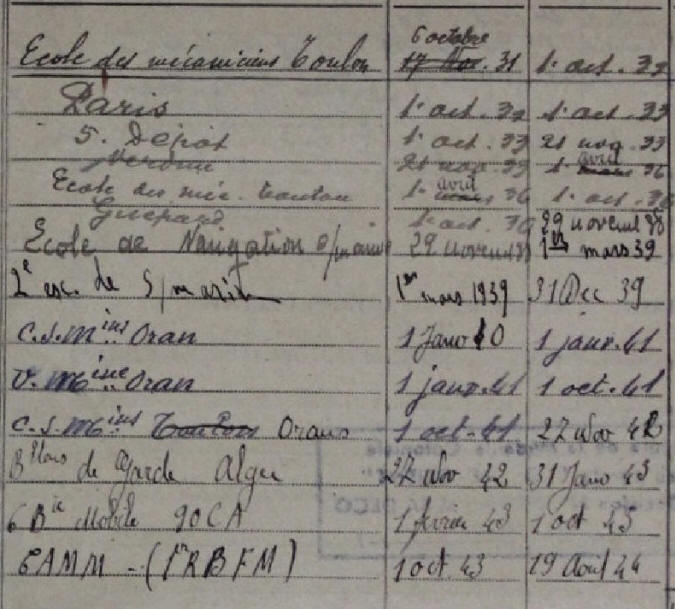 6 octobre
Ecole des mécaniciens Toulon 17 Nov. 31 1 oct. 32
Paris 1 oct. 32 1 oct. 33
5. Dépôt 1 oct. 33 21 nov. 33
21 nov. 33 1 avril 36
Ecole des méc. Toulon 1 avril 36 1 oct. 36
Guépard 1 oct. 36 29 novemb 38
Ecole de Navigation s/marine 29 novemb 38 1er mars 39
2e esc. de S/marin 1er mars 1939 31 Dec 39
C.S.Mine Oran 1 Janv 40 1 janv. 41
U. Mine Oran 1 janv. 41 1 oct. 41
C.S. Mine Toulon Oran 1 oct. 41 27 Nov 42
Btons de Garde Alger 27 Nov 42 31 Janv 43
6 Bie Mobile 90CA 1 février 43 1 oct 43
CAMM - (1er RBFM) 1 oct. 43 19 Aout 44